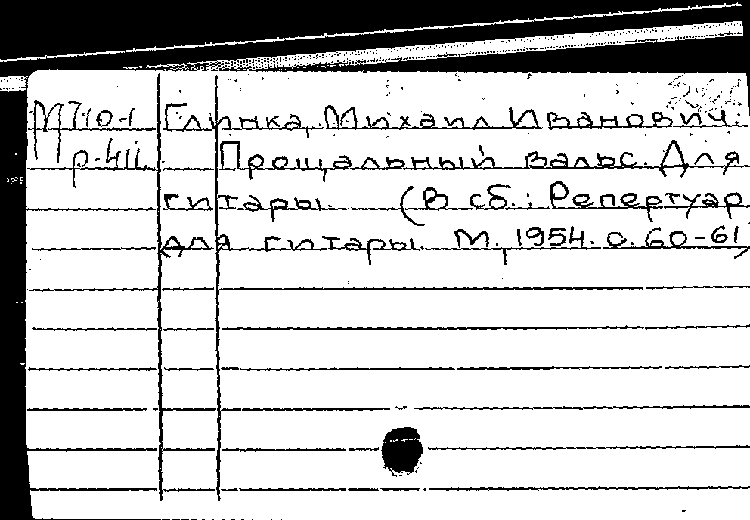 М710-1 Глинка, Михаил Иванович.
Прощальный вальс. Для
гитары. (В сб.: Репертуар
для гитары. М., 1954. с. 60-61)